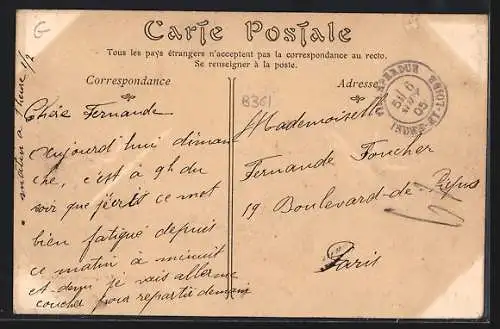 G
Carte Postale
Tous les pays étrangers n'acceptent pas la correspondance au recto.
Se renseigner à la poste.
Correspondance
Adresse
B361
Chère Fernande
aujourd'hui diman
che, c'est à 9h du
soir que j'écris ce mot
bien fatigué depuis
ce matin à minuit
et demi je vais aller me
coucher pour repartir demain
matin à 1 heure 1/2
Mademoiselle
Fernande Foucher
19 Boulevard de Picpus
Paris